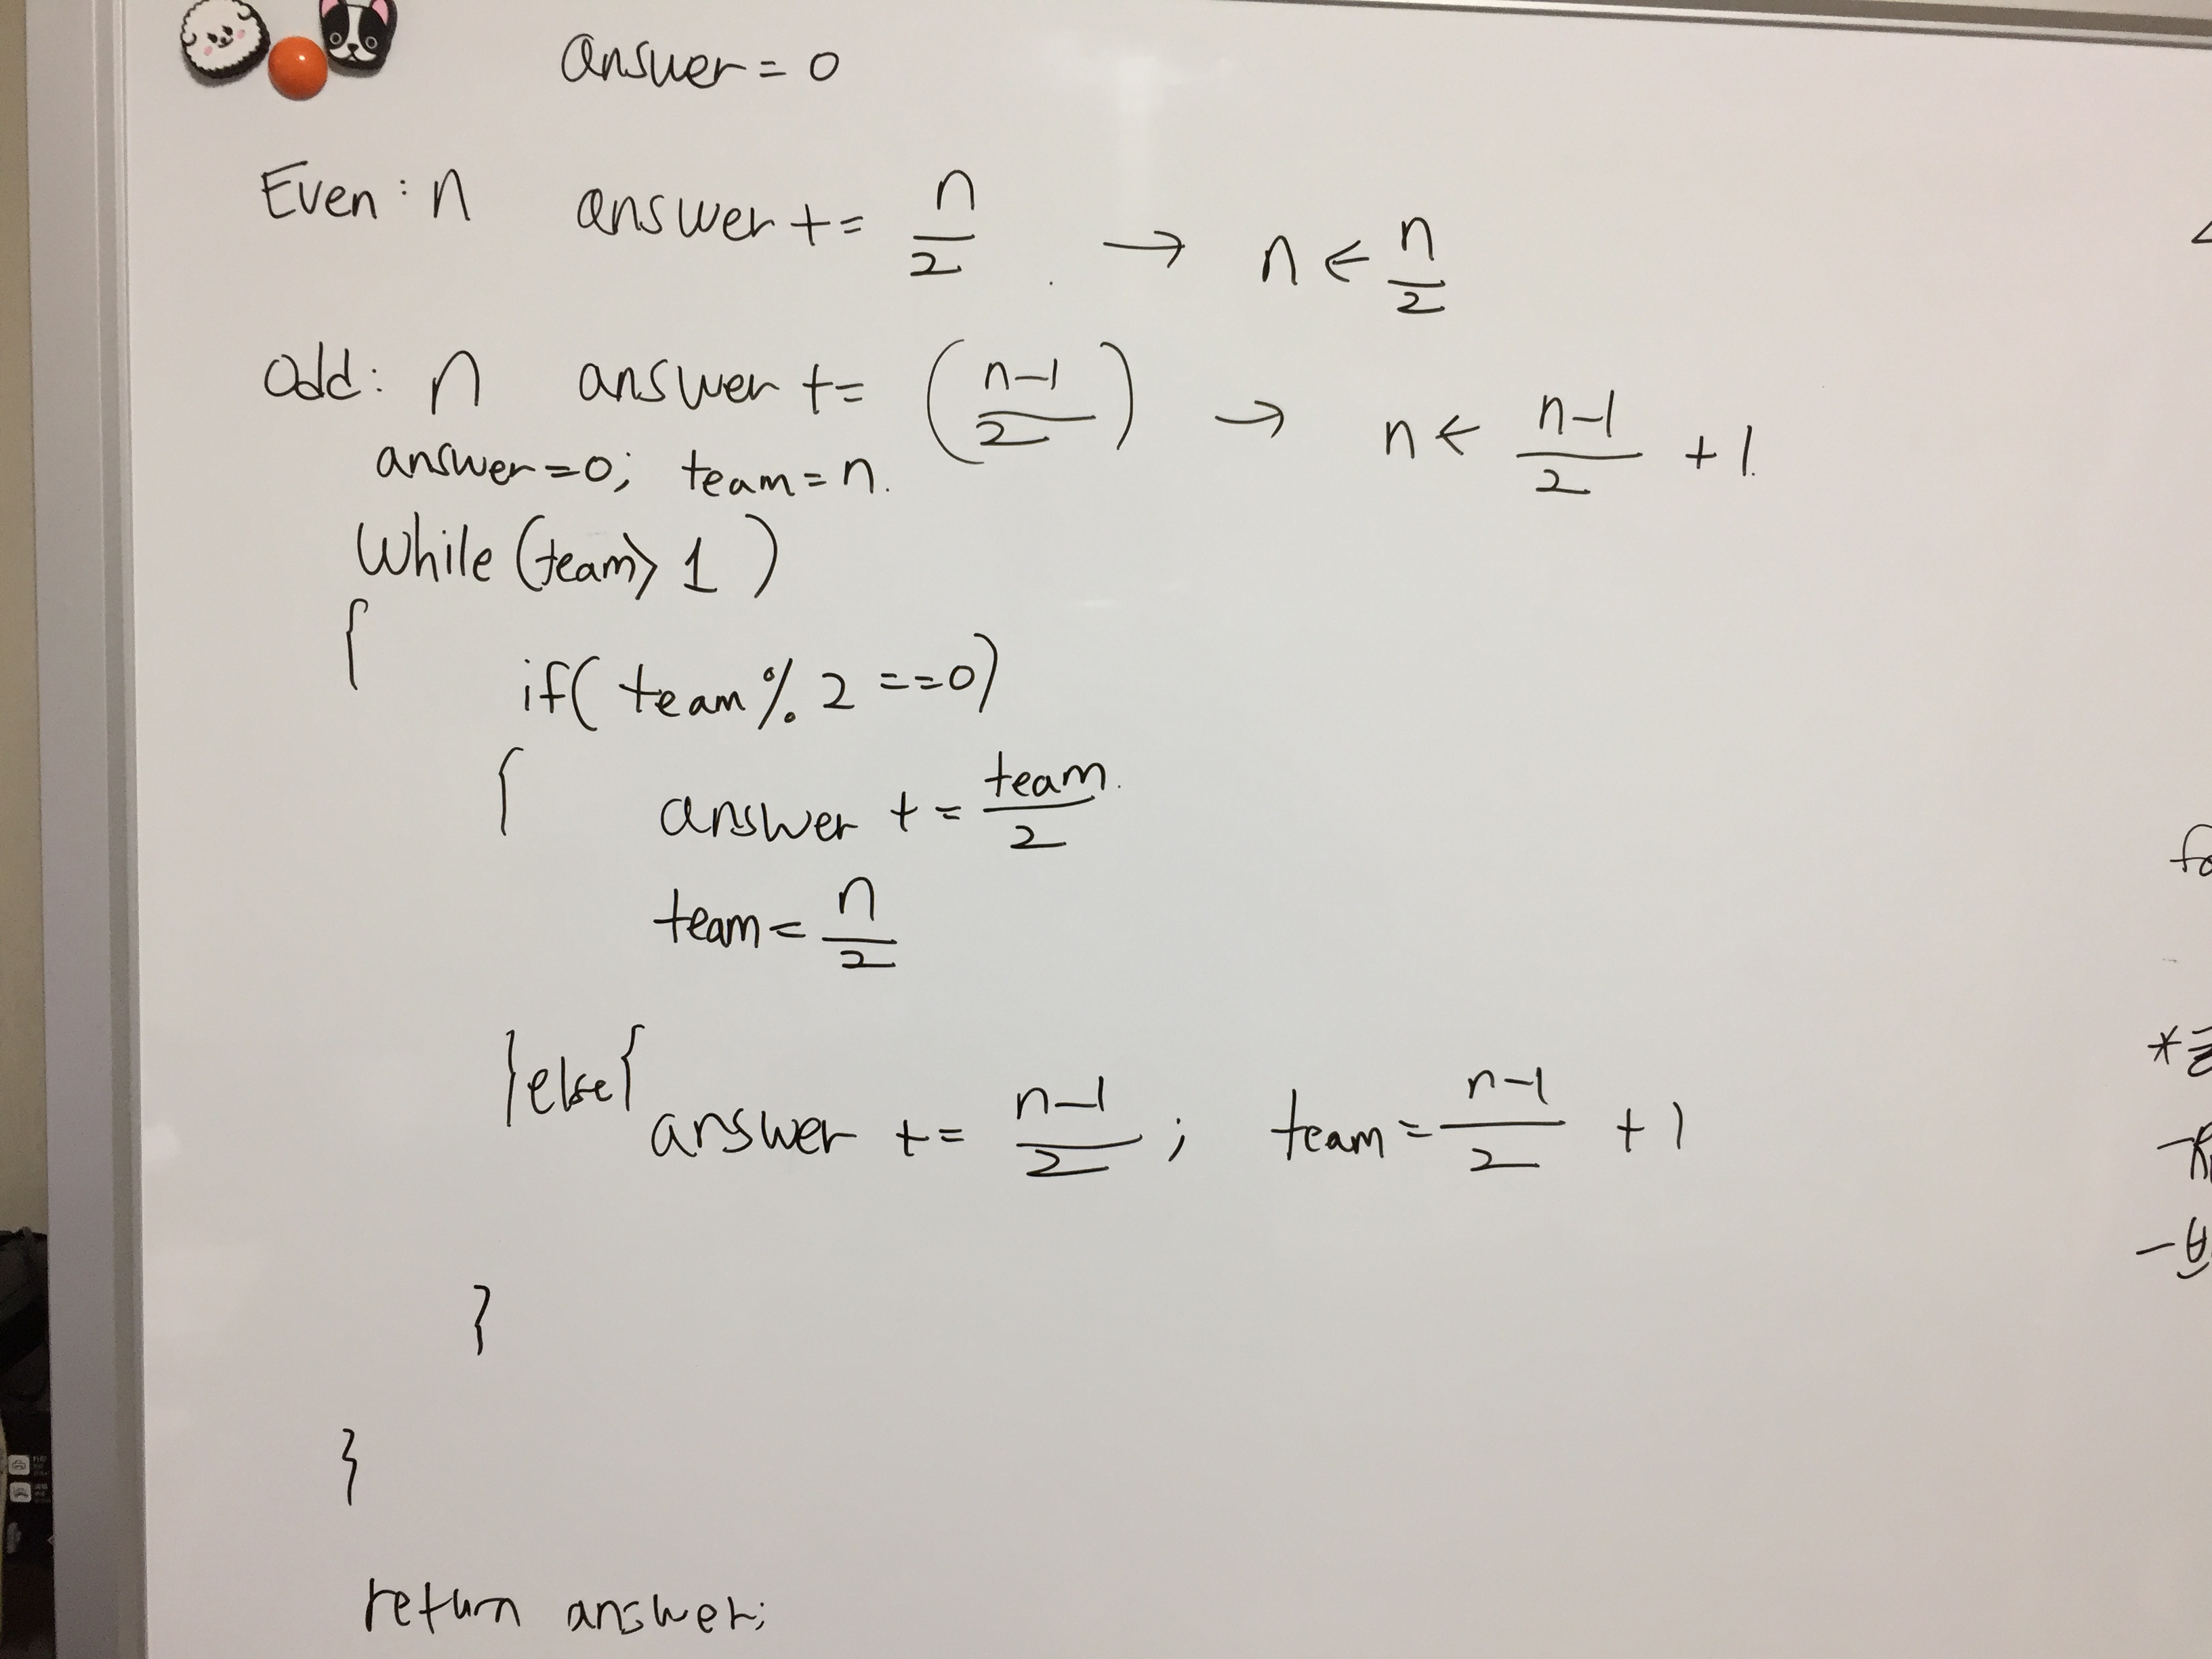 answer = 0
Even : n answer += n/2 → n ← n/2
Odd : n answer += (n-1/2) → n ← n-1/2 + 1.
answer=0; team=n.
While (team > 1)
{
if( team % 2 ==0)
{ answer += team/2
team = n/2
}else{
answer += n-1/2 ; team = n-1/2 + 1
}
}
return answer;